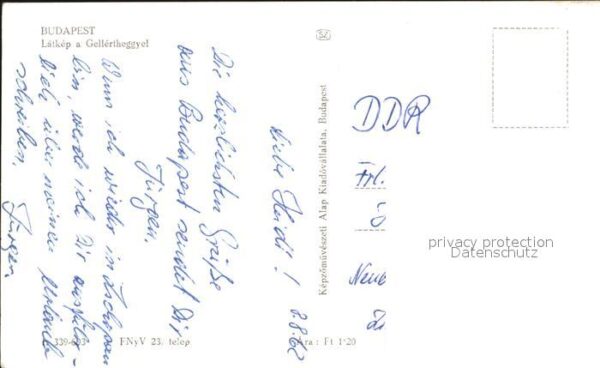 BUDAPEST
Látkép a Gellértheggyel
Liebe Heidi!
8.8.62
Die herzlichsten Grüße
aus Budapest sendet Dir
Jürgen.
Wenn ich wieder in Zschopau
bin, werde ich Dir ausführ-
lich über meinen Urlaub
schreiben.
Jürgen
339-603
FNyV 23. telep
Ára: Ft 1·20
Képzőművészeti Alap Kiadóvállalata, Budapest
DDR
Frl.
privacy protection
Datenschutz